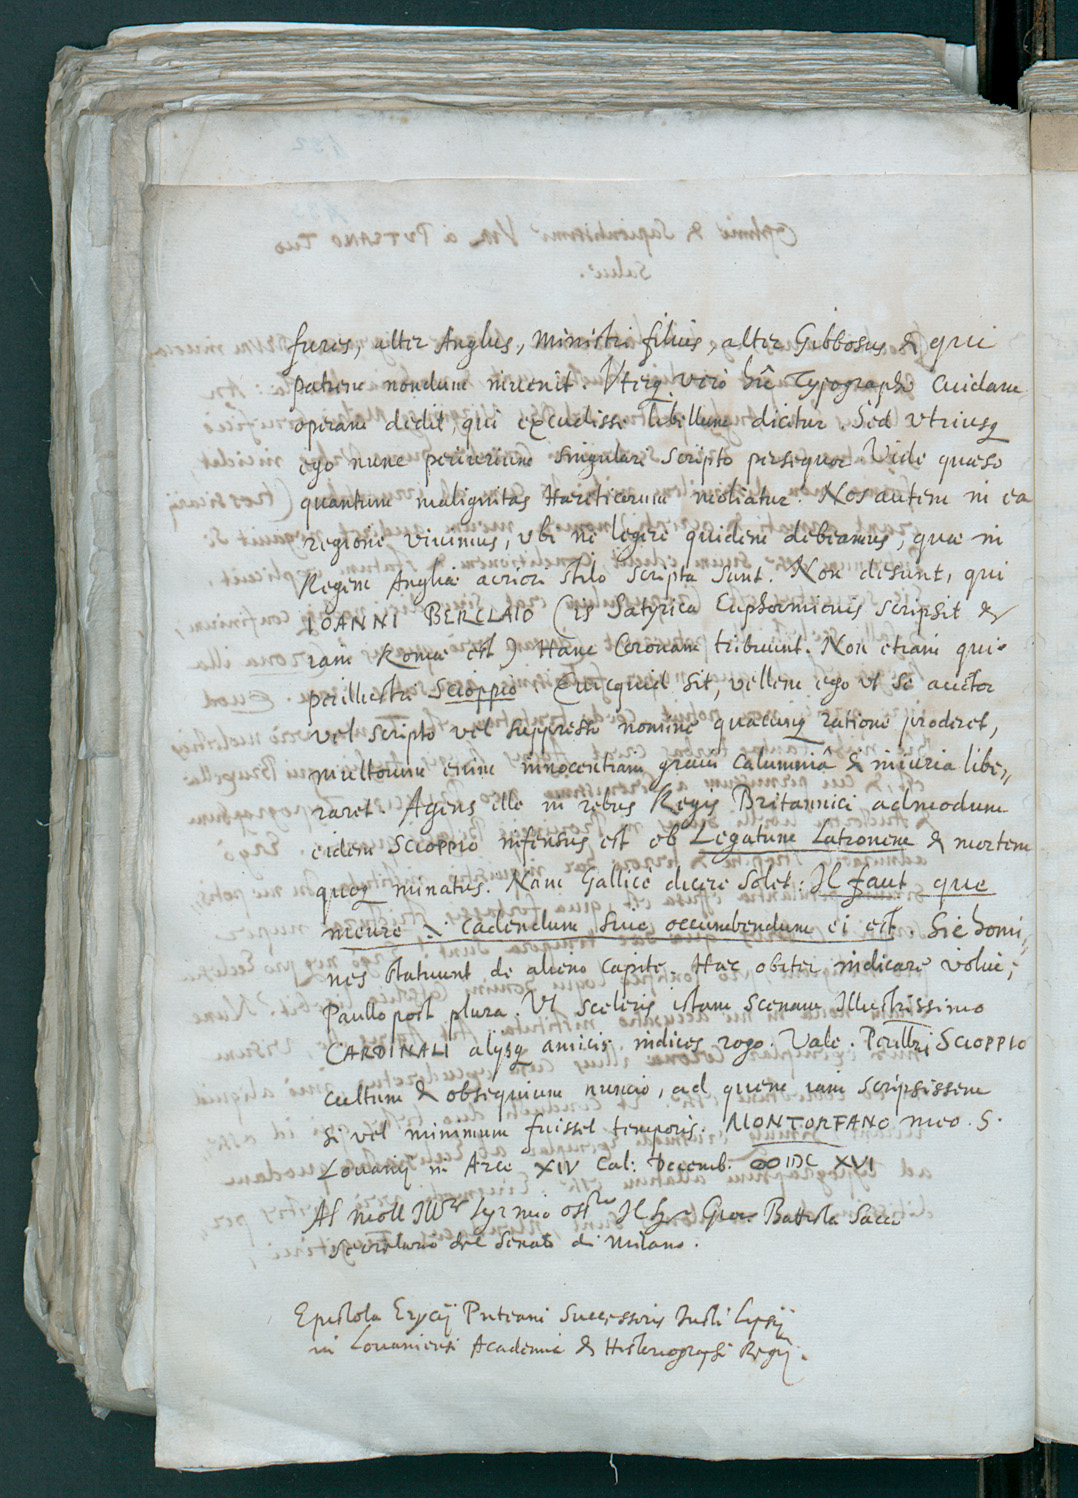 fures, alter Anglus, Ministri filius, alter Gibbosus & qui
patrem nondum invenit. Uterq vero hîc Typographo cuidam
operam dedit, qui excudisse libellum dicitur. Sed utriusq
ego nunc periurium singulari scripto persequor. Vide quaeso
quantum malignitas Haereticorum moliatur. Nos autem in ea
regione vivimus, ubi ne legere quidem debeamus, quae in
Regem Angliae acriori stilo scripta sunt. Non desunt, qui
IOANNI BERCLAIO (is Satyrica Euphormionis scripsit &
iam Romae est) Hanc Coronam tribuunt. Non etiam qui
perillustri Scioppio Quicquid sit, vellem ego ut se auctor
vel scripto vel suppresso nomine quacunq ratione proderet,
multorum enim innocentiam gravi calumniâ & iniuria libe„
raret. Agens ille in rebus Regis Britannici admodum
eidem SCIOPPIO infensus est ob Legatum Latronem & mortem
quoq minatus. Nam Gallicè dicere solet: Il faut que
meure & cadendum sive occumbendum ei est. Sic homi„
nes statuunt de alieno capite. Haec obiter indicare volui;
Paullo post plura. Ut sceleris istam scenam Illustrissimo
CARDINALI alysq amicis indices rogo. Vale. Perillri SCIOPPIO
cultum & obsequium nuncio, ad quem iam scripsissem
si vel minimum fuisset temporis. MONTORFANO meo S.
Lovanij in Arce XIV Cal: Decemb. ꝏIDC XVI
Al moll Illre Sig mio ossmo Il Sr Gio. Battista Sacco
Secretario del Senato di Milano.
Epistola Erycij Puteani Successoris Iusti Lipsij
in Lovaniensi Academia & Historiographi Regij.